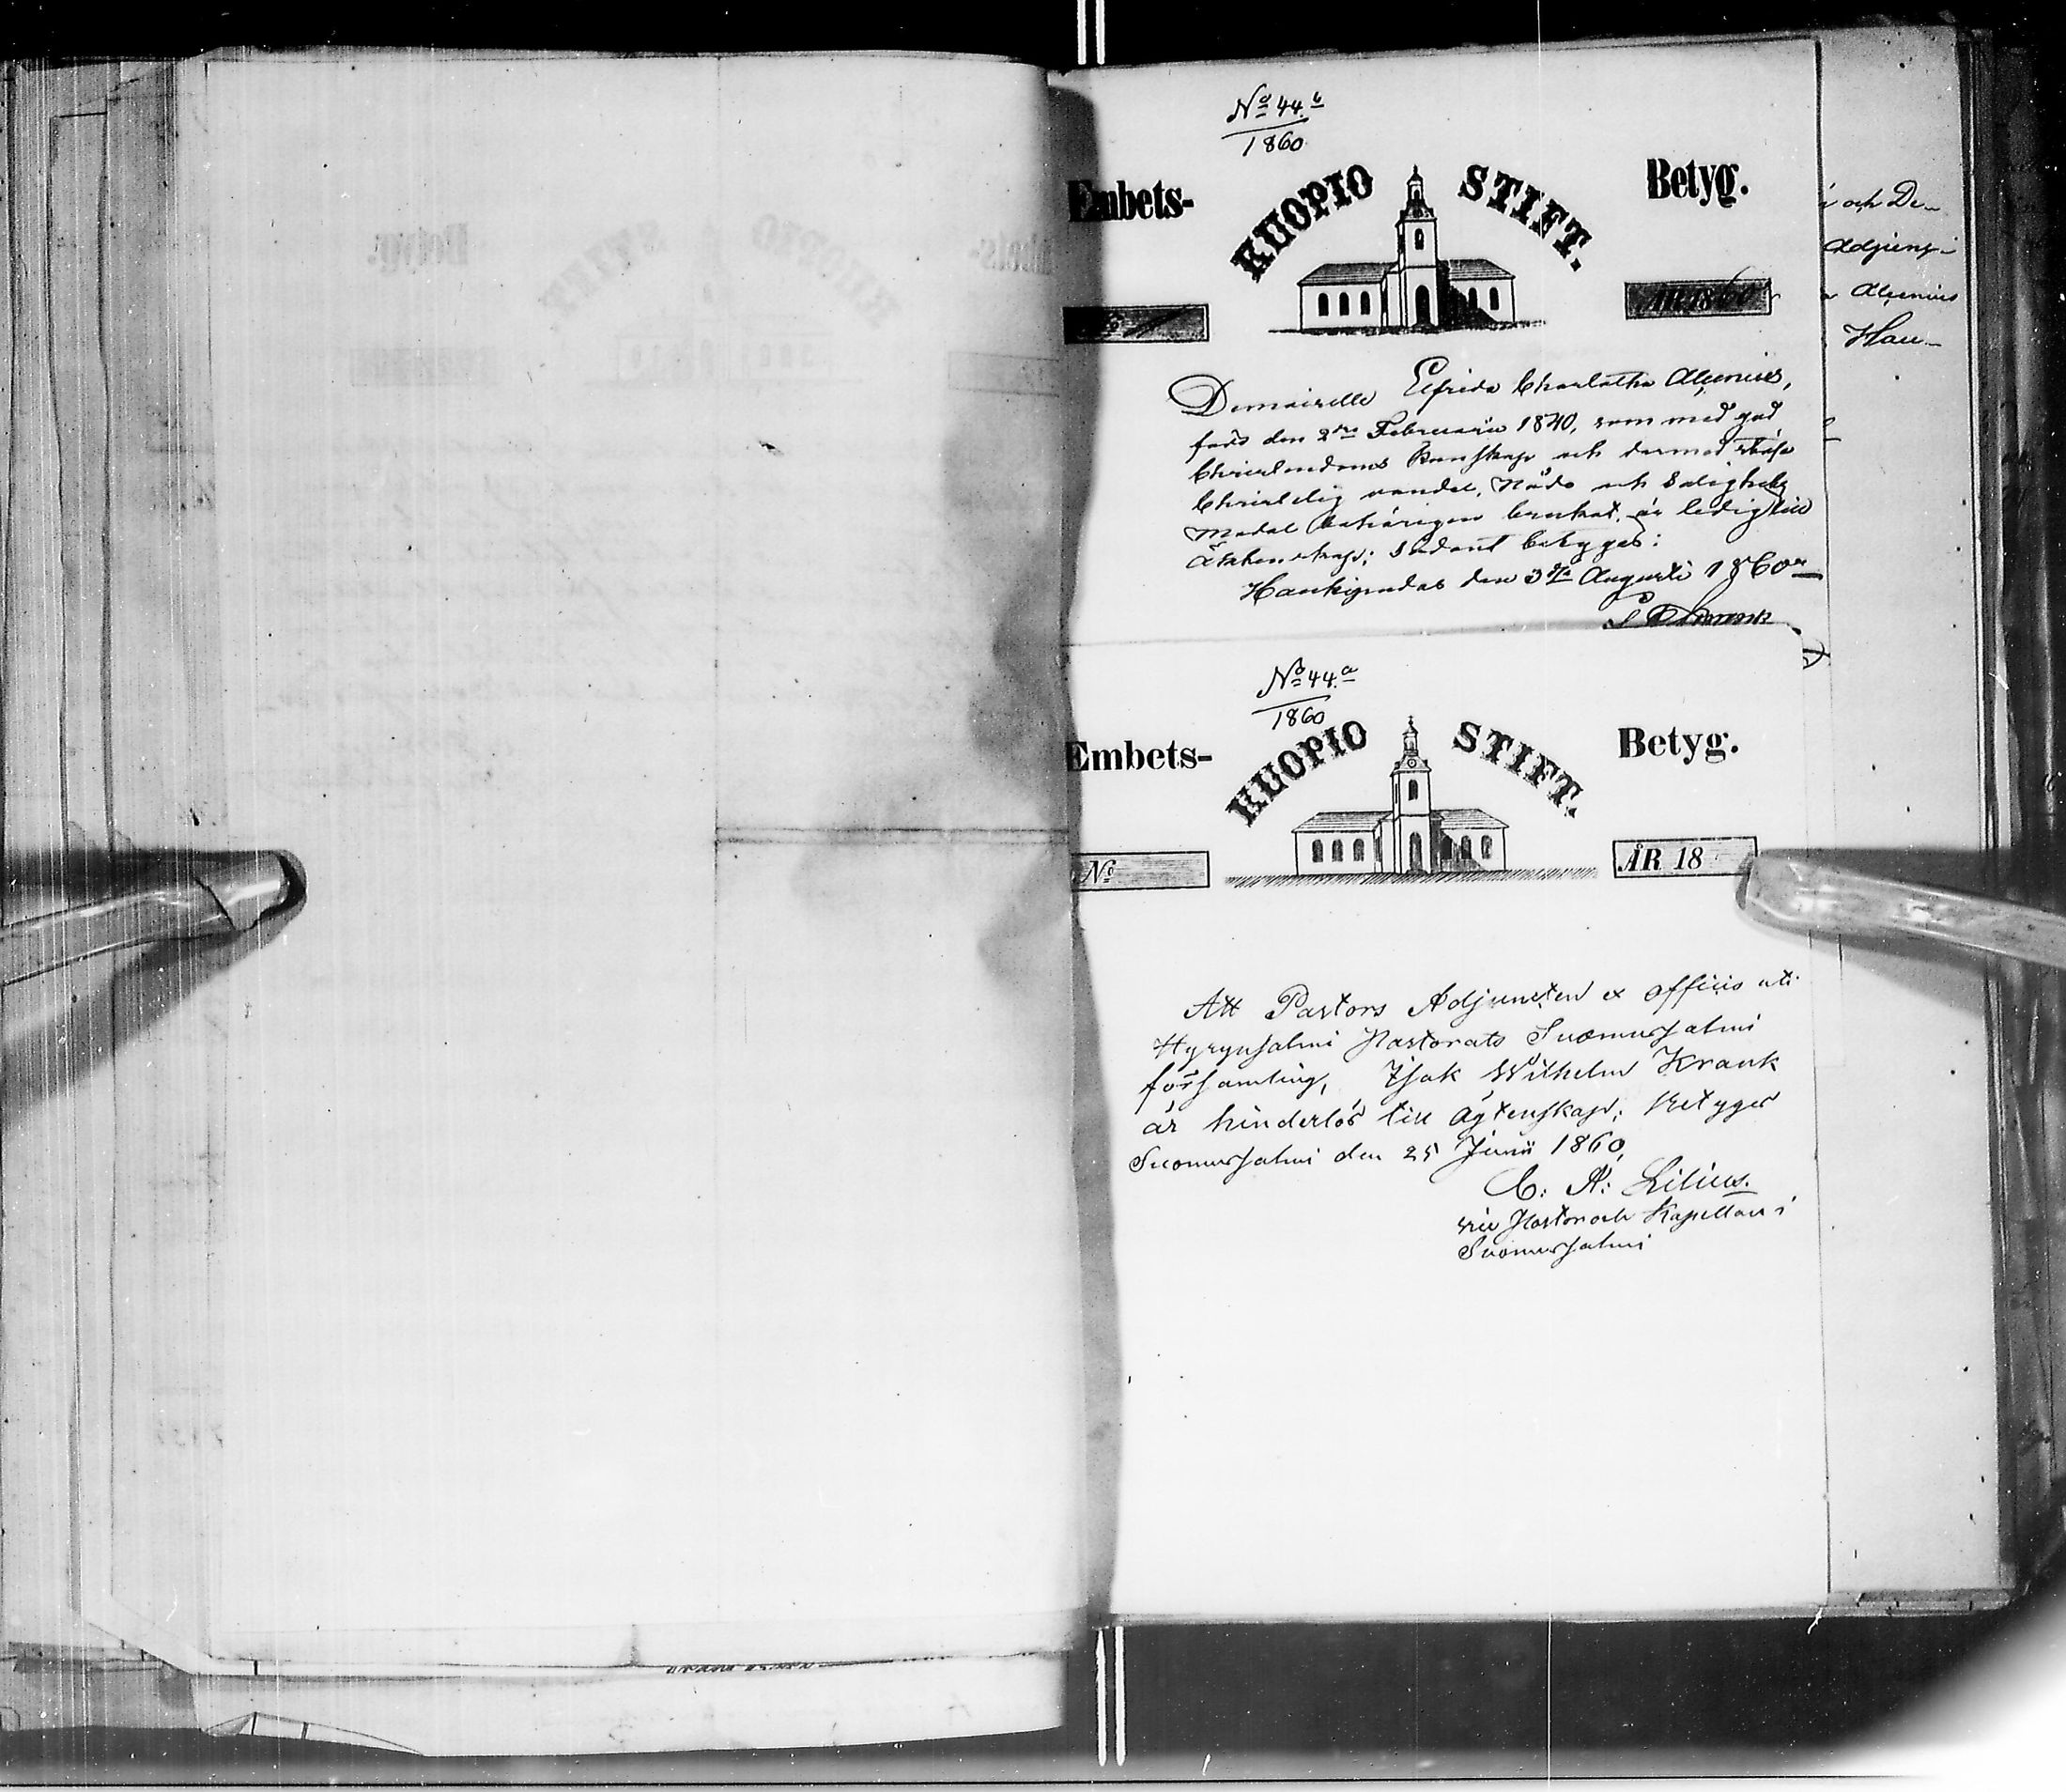 No 44.b
1860
Embets-
KUOPIO STIFT.
Betyg.
ÅR 1860
Demoiselle Elfrida Charlotha Alcenius,
född den 2dra Februarii 1840, som med god
Christendoms kunskap och dermed
Christelig vandel, Nåds och Salighets
Medel behörigen brukat, är ledig till
Äktenskap; sådant betygas:
Haukipudas den 3dje Augusti 1860
och De-
Adjung-
Alcenius
Hau-
No 44.a
1860
Embets-
KUOPIO STIFT.
Betyg.
No
ÅR 18
Att Pastors Adjuncten ex officio uti
Hyrynsalmi Pastorats Suomusjalmi
församling, Isak Wilhelm Krank
är hinderlös till ägtenskap; betygar
Suomusjalmi den 25 Junii 1860,
C: A: Lilius.
vice Pastor och Kapellan i
Suomusjalmi